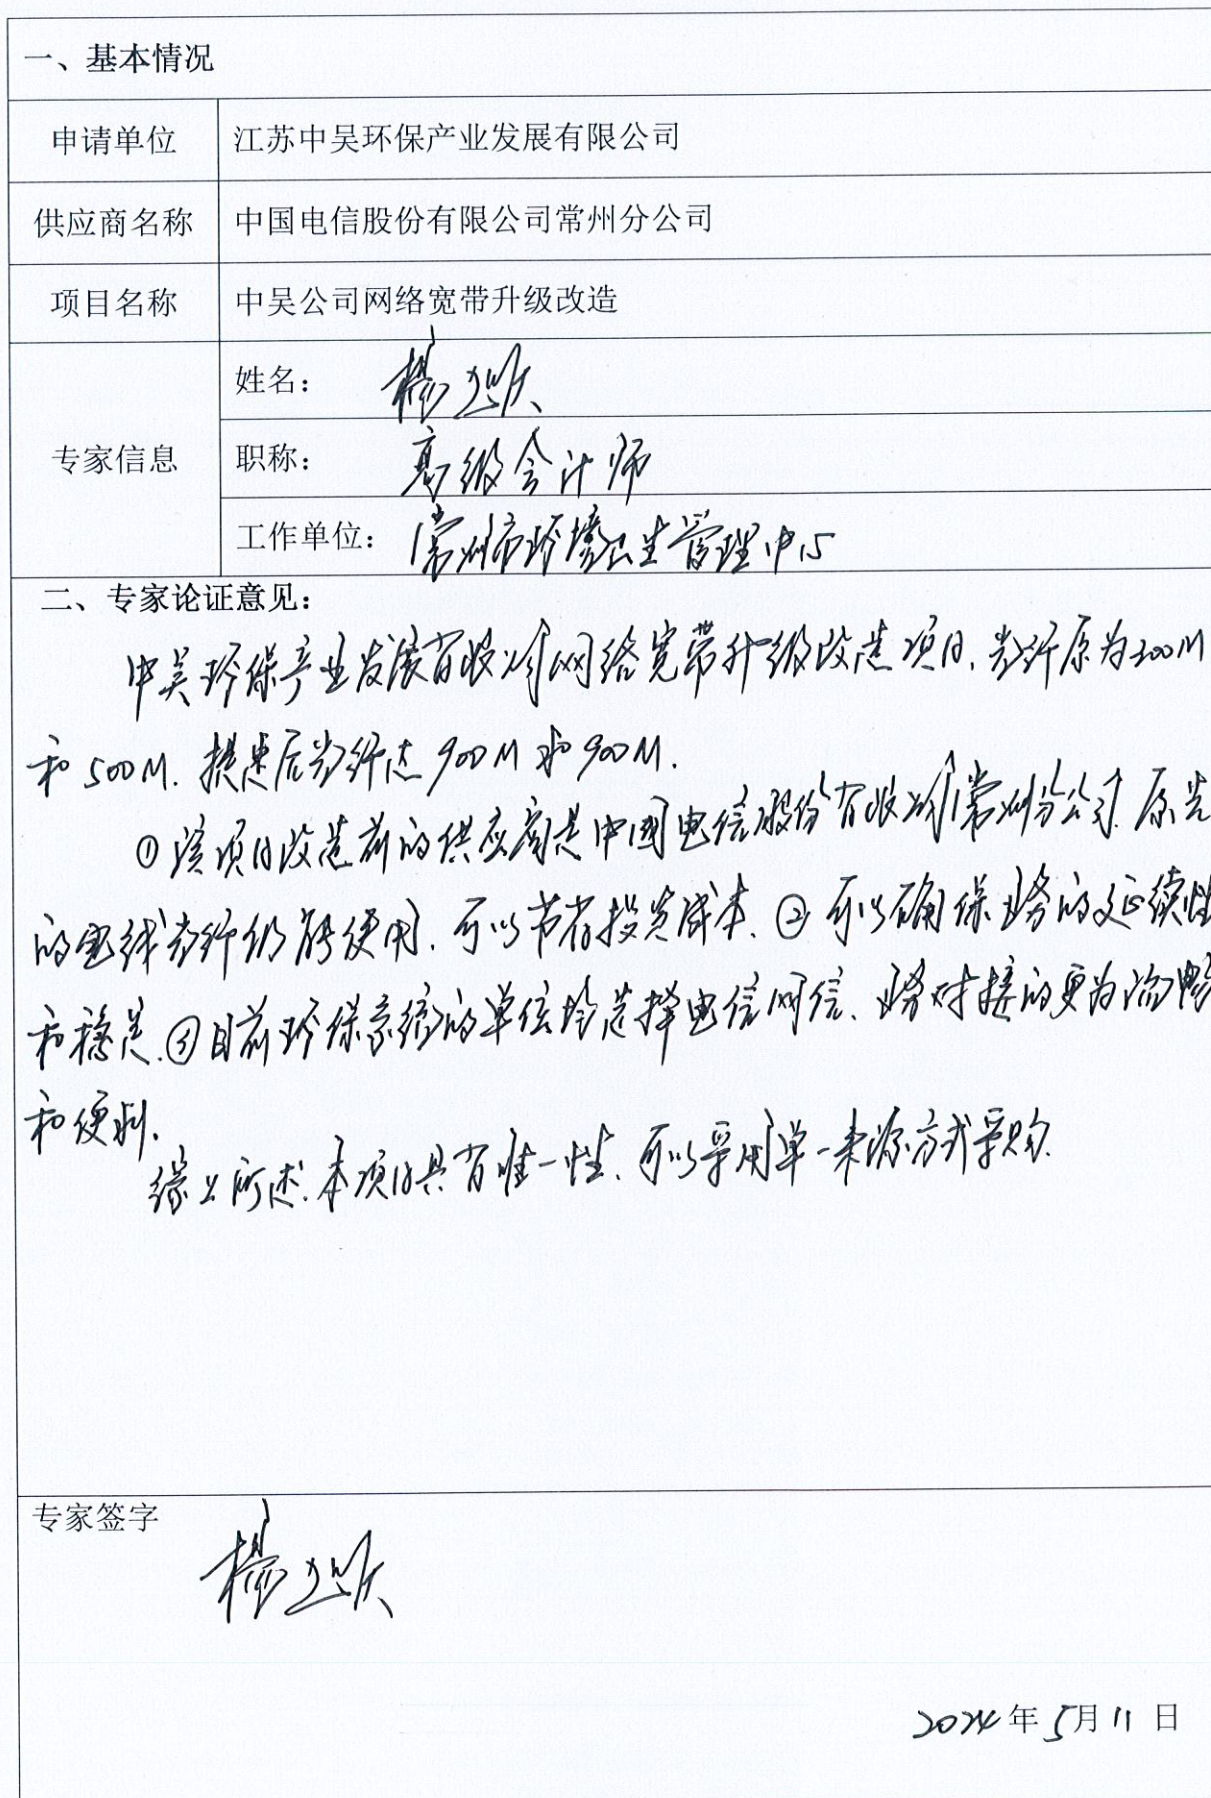 一、基本情况
申请单位 江苏中吴环保产业发展有限公司
供应商名称 中国电信股份有限公司常州分公司
项目名称 中吴公司网络宽带升级改造
专家信息 姓名： 杨
职称： 高级会计师
工作单位： 常州市环境卫生管理中心
二、专家论证意见：
中吴环保产业发展有限公司网络宽带升级改造项目，光纤原为200M
和500M. 提速后光纤达900M和900M.
①该项目改造前的供应商是中国电信股份有限公司常州分公司. 原先
的电缆光纤仍能使用，可以节省投资成本. ②可以确保业务的延续性
和稳定. ③目前环保系统的单位均选择电信网信、业务对接的更为流畅
和便利.
综上所述. 本项目具有唯一性、可以采用单一来源方式采购.
专家签字
杨
2024年5月11日